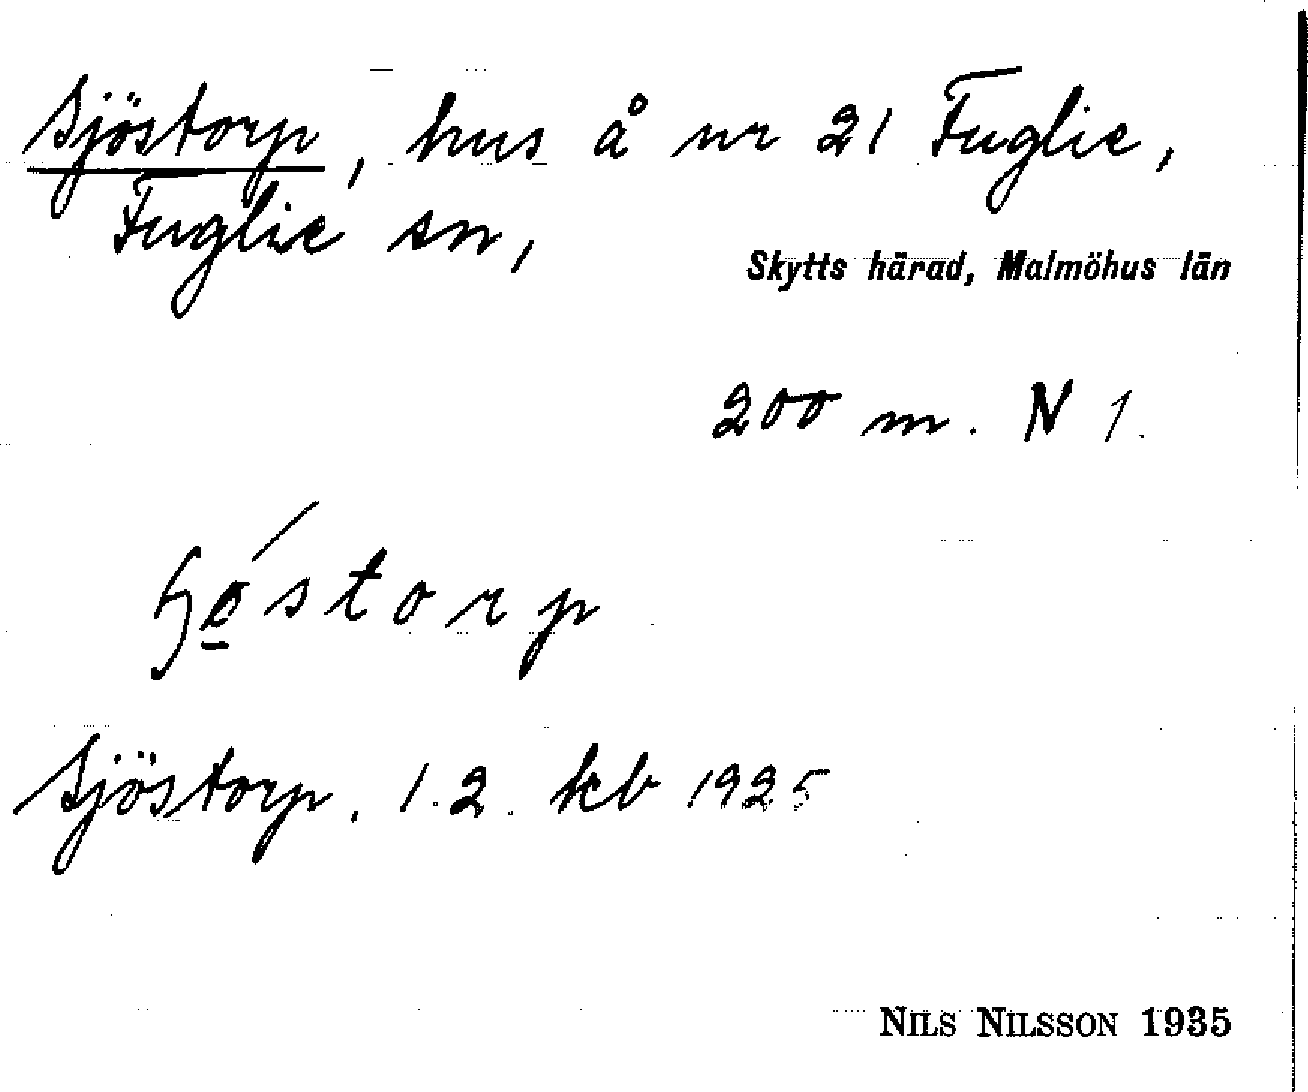 Sjöstorp, hus å nr 21 Fuglie,
Fuglie sn,
Skytts härad, Malmöhus län
200 m. N 1.
Sjöstorp. 1.2. kb 1925
NILS NILSSON 1935